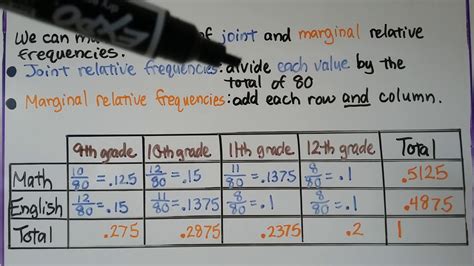 We can m of joint and marginal relative
frequencies.
EXPO
• Joint relative frequencies: divide each value by the
total of 80
• Marginal relative frequencies: add each row and column.
9th grade 10th grade 11th grade 12th grade Total
Math 10/80 = .125 12/80 = .15 11/80 = .1375 8/80 = .1 .5125
English 12/80 = .15 11/80 = .1375 8/80 = .1 8/80 = .1 .4875
Total .275 .2875 .2375 .2 1